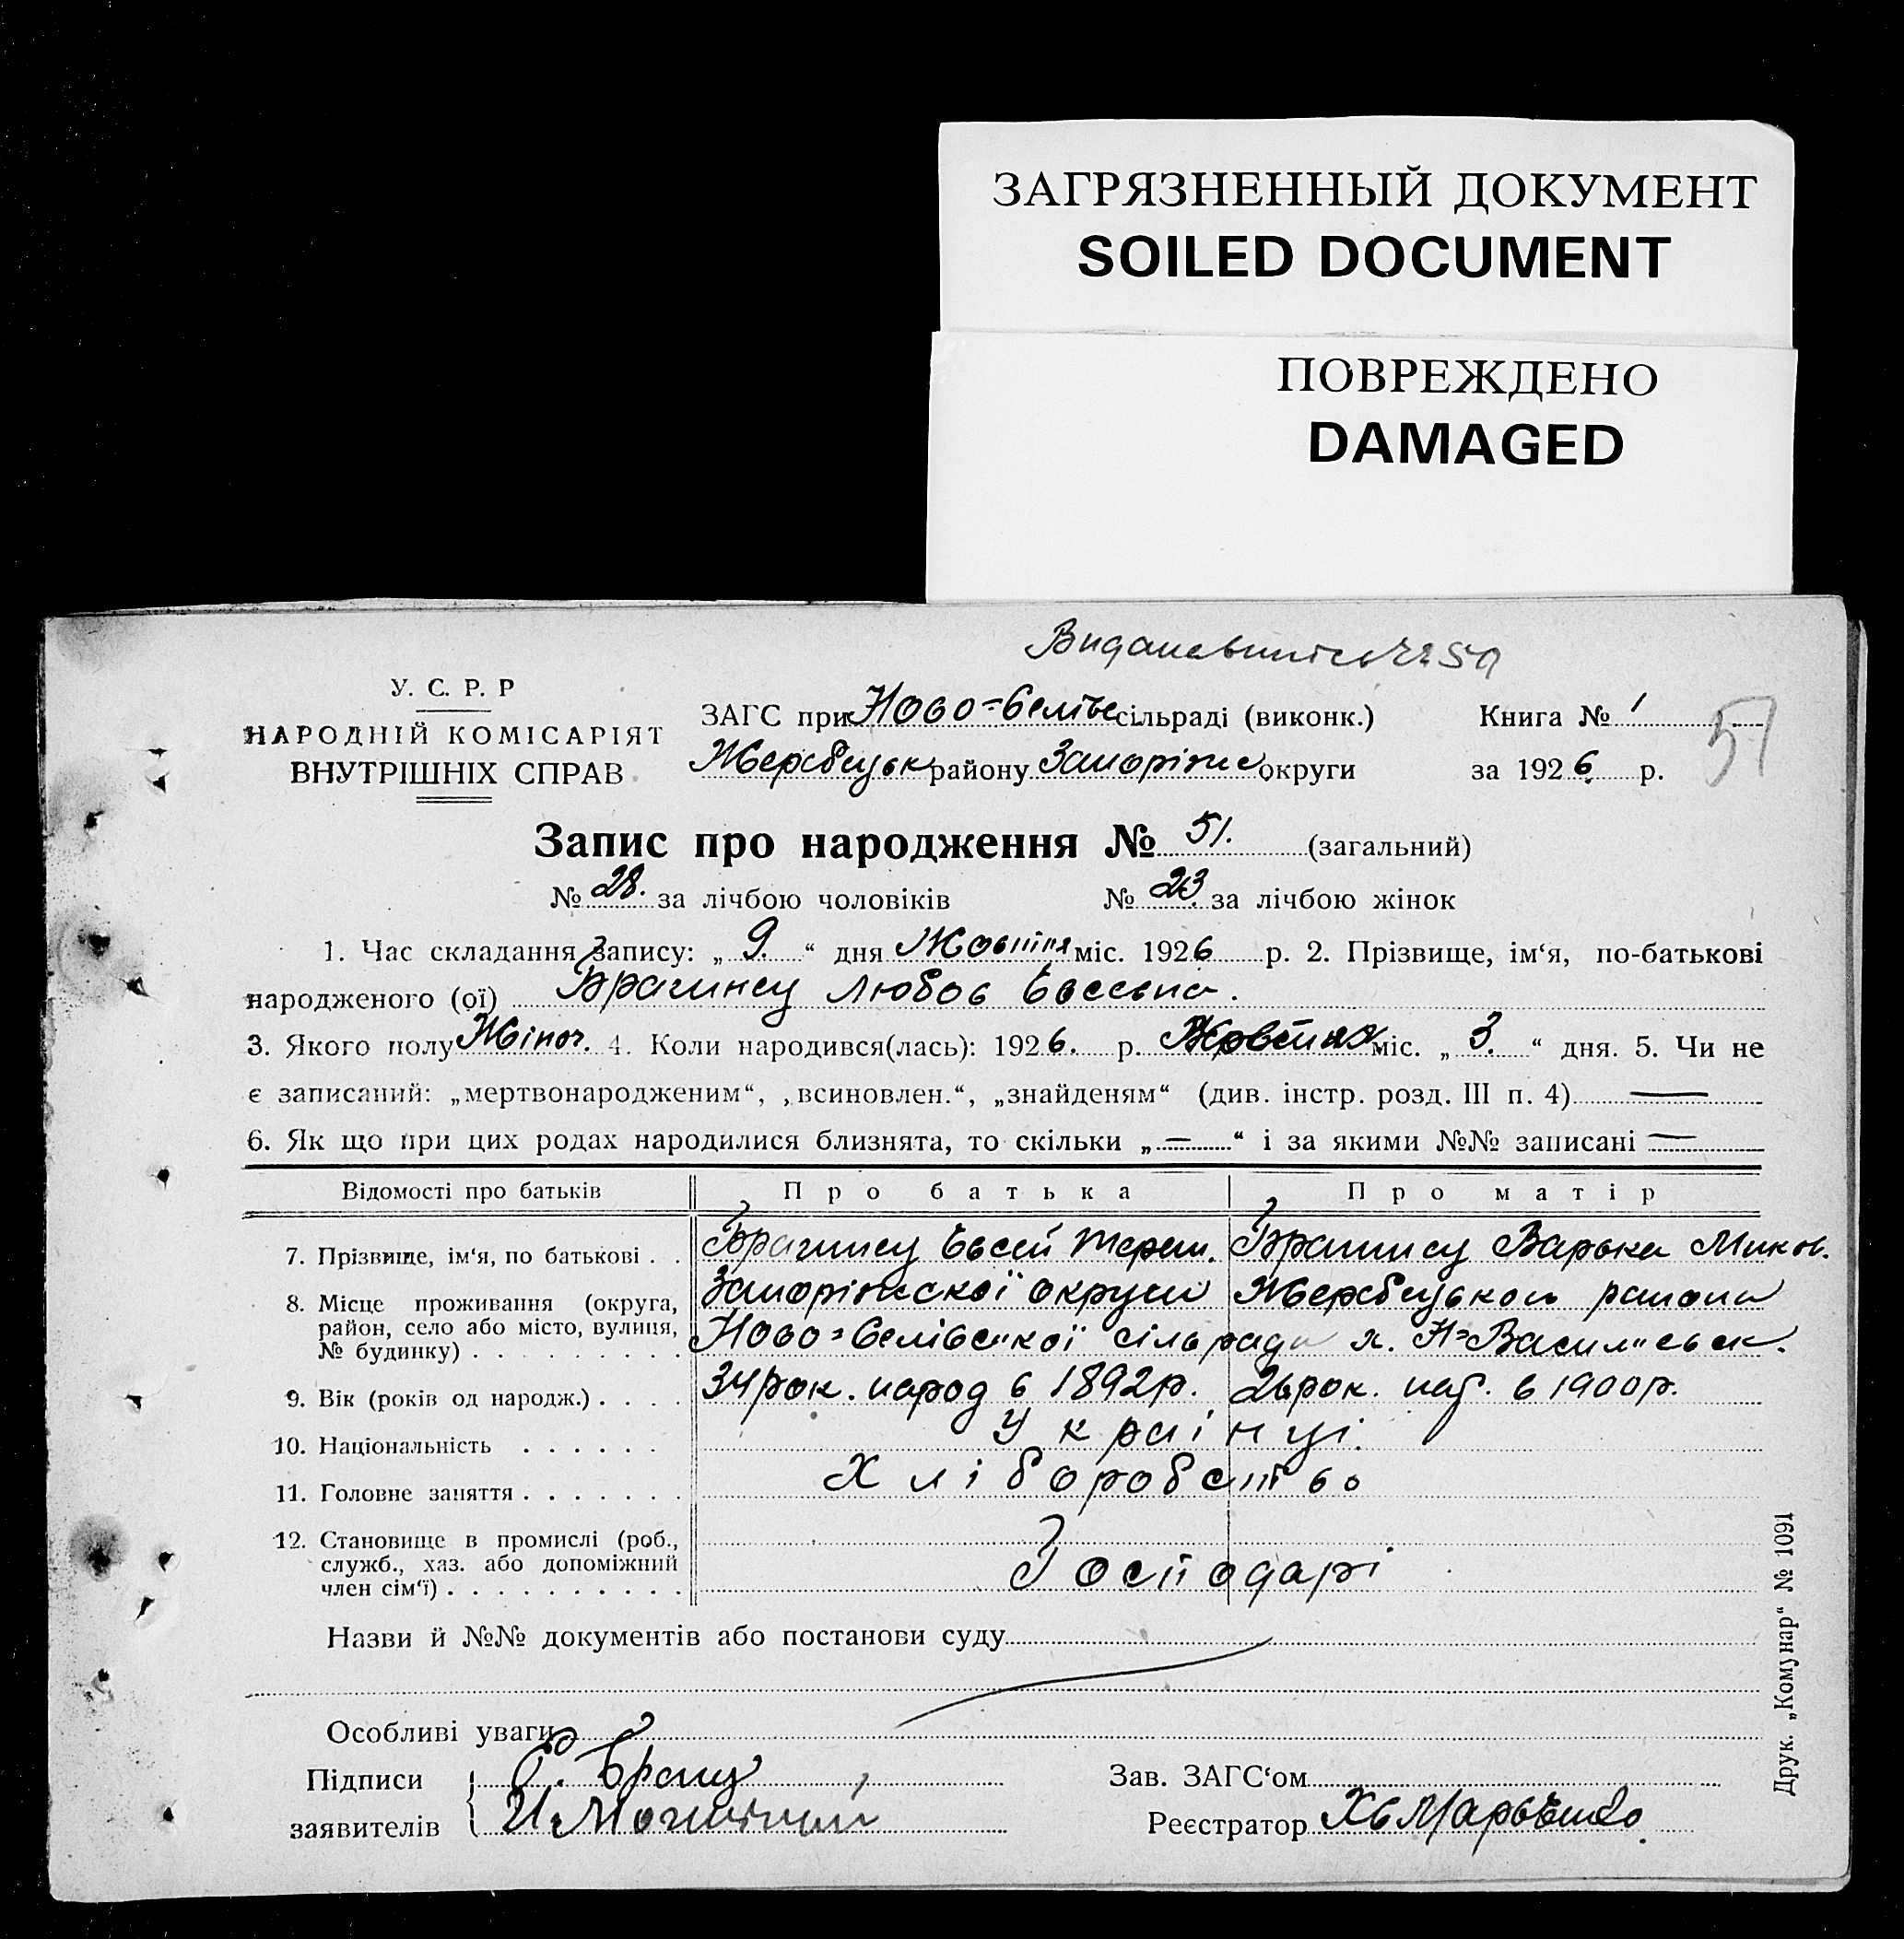 ЗАГРЯЗНЕННЫЙ ДОКУМЕНТ
SOILED DOCUMENT
ПОВРЕЖДЕНО
DAMAGED
У. С. Р. Р
НАРОДНІЙ КОМІСАРІЯТ
ВНУТРІШНІХ СПРАВ
ЗАГС при сільраді (виконк.) Книга № 1
району Запоріжс округи за 1926 р.
51
Запис про народження № 51. (загальний)
№ 28. за лічбою чоловіків № 23 за лічбою жінок
1. Час складання запису: „ 9. “ дня Жовтня міс. 1926 р. 2. Прізвище, ім‘я, по-батькові
народженого (ої) Любов Євсеевна.
3. Якого полу Жіноч. 4. Коли народився(лась): 1926. р. Жовтня міс. „ 3. “ дня. 5. Чи не
є записаний: „мертвонародженим“, „всиновлен.“, „знайденям“ (див. інстр. розд. III п. 4) —
6. Як що при цих родах народилися близнята, то скільки „ — “ і за якими №№ записані —
Відомості про батьків Про батька Про матір
7. Прізвище, ім‘я, по батькові . . Євсей Терен. Варька Микол.
8. Місце проживання (округа, Запоріжскої округи району
район, село або місто, вулиця, сільради х. Н=Васил
№ будинку) . . . . . . . . .
9. Вік (років од народж.) . . . . 34 рок. народ в 1892 р. 26 рок. нар. в 1900 р.
10. Національність . . . . . . Українці.
11. Головне заняття . . . . . . . Хліборобство
12. Становище в промислі (роб.,
служб., хаз. або допоміжний Господарі
член сім‘ї) . . . . . . . . . .
Назви й №№ документів або постанови суду
Особливі уваги
Підписи Зав. ЗАГС‘ом
заявителів Реєстратор
Друк. „Комунар“ № 1091